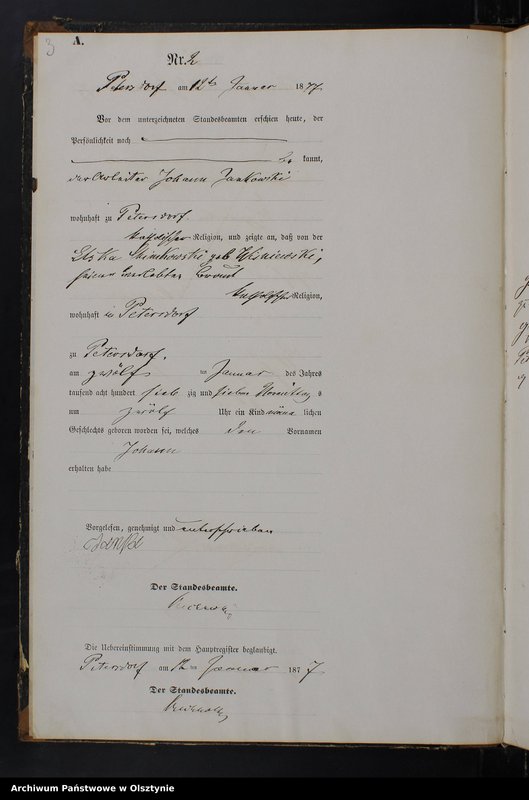 3
A.
Nr. 2
Petersdorf am 12ten Januar 1877.
Vor dem unterzeichneten Standesbeamten erschien heute, der
Persönlichkeit nach
kannt,
der Arbeiter Johann Jankowski
wohnhaft zu Petersdorf
katholischer Religion, und zeigte an, daß von der
geb Wisniewski,
seiner Braut
katholischer Religion,
wohnhaft in Petersdorf
zu Petersdorf,
am zwölf ten Januar des Jahres
tausend acht hundert sieb zig und sieben Vormittag s
um zwölf Uhr ein Kind männ lichen
Geschlechts geboren worden sei, welches den Vornamen
Johann
erhalten habe
Vorgelesen, genehmigt und unterschrieben
Der Standesbeamte.
Die Uebereinstimmung mit dem Hauptregister beglaubigt.
Petersdorf am 12 ten Januar 187 7
Der Standesbeamte.
Archiwum Państwowe w Olsztynie